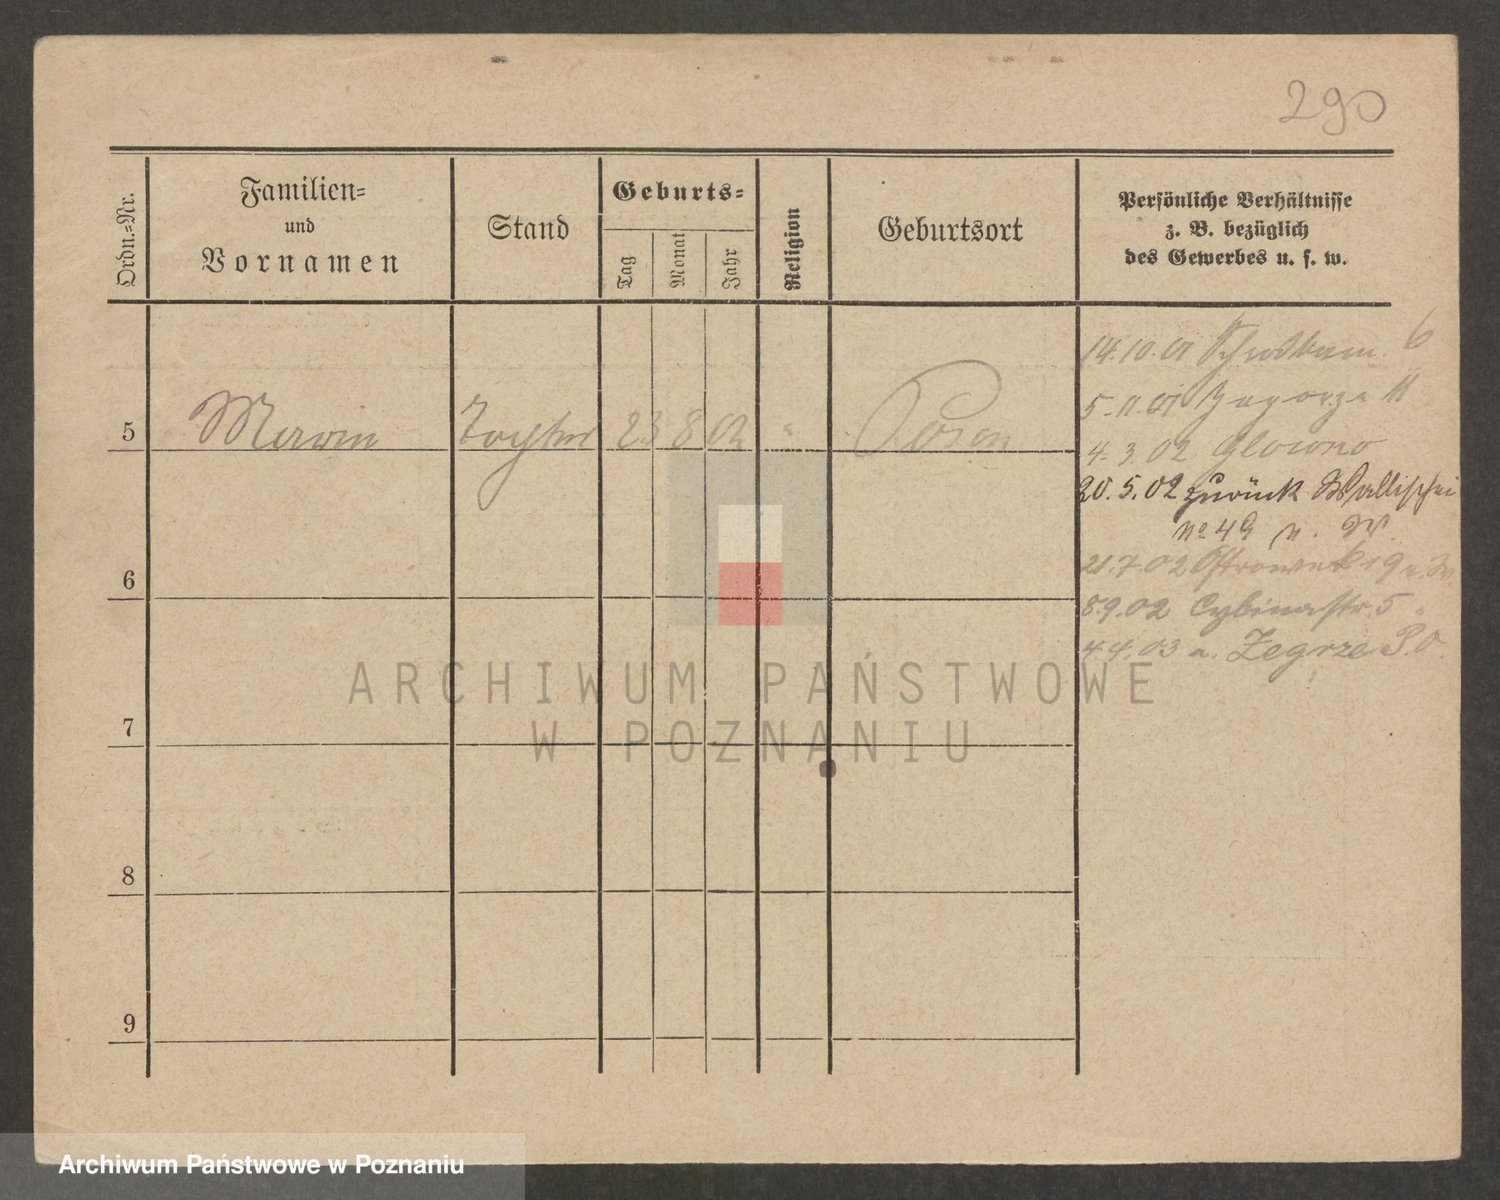 290
Ordn.-Nr.
Familien-
und
Vornamen
Stand
Geburts-
Tag
Monat
Jahr
Religion
Geburtsort
Persönliche Verhältnisse
z. B. bezüglich
des Gewerbes u. s. w.
14.10.01 Schrodkam. 6
5 Marin Tochter 23 8 02 " Posen
5.11.01 Zagorze 11
4.3.02 Glowno
20.5.02 zurück Wallischei
No 49 n. W.
6
21.7.02 Ostrowek 19 n. W.
8.9.02 Cybinastr. 5 "
4.4.03 n. Zegrze P.O.
7
8
9
ARCHIWUM PAŃSTWOWE
W POZNANIU
Archiwum Państwowe w Poznaniu